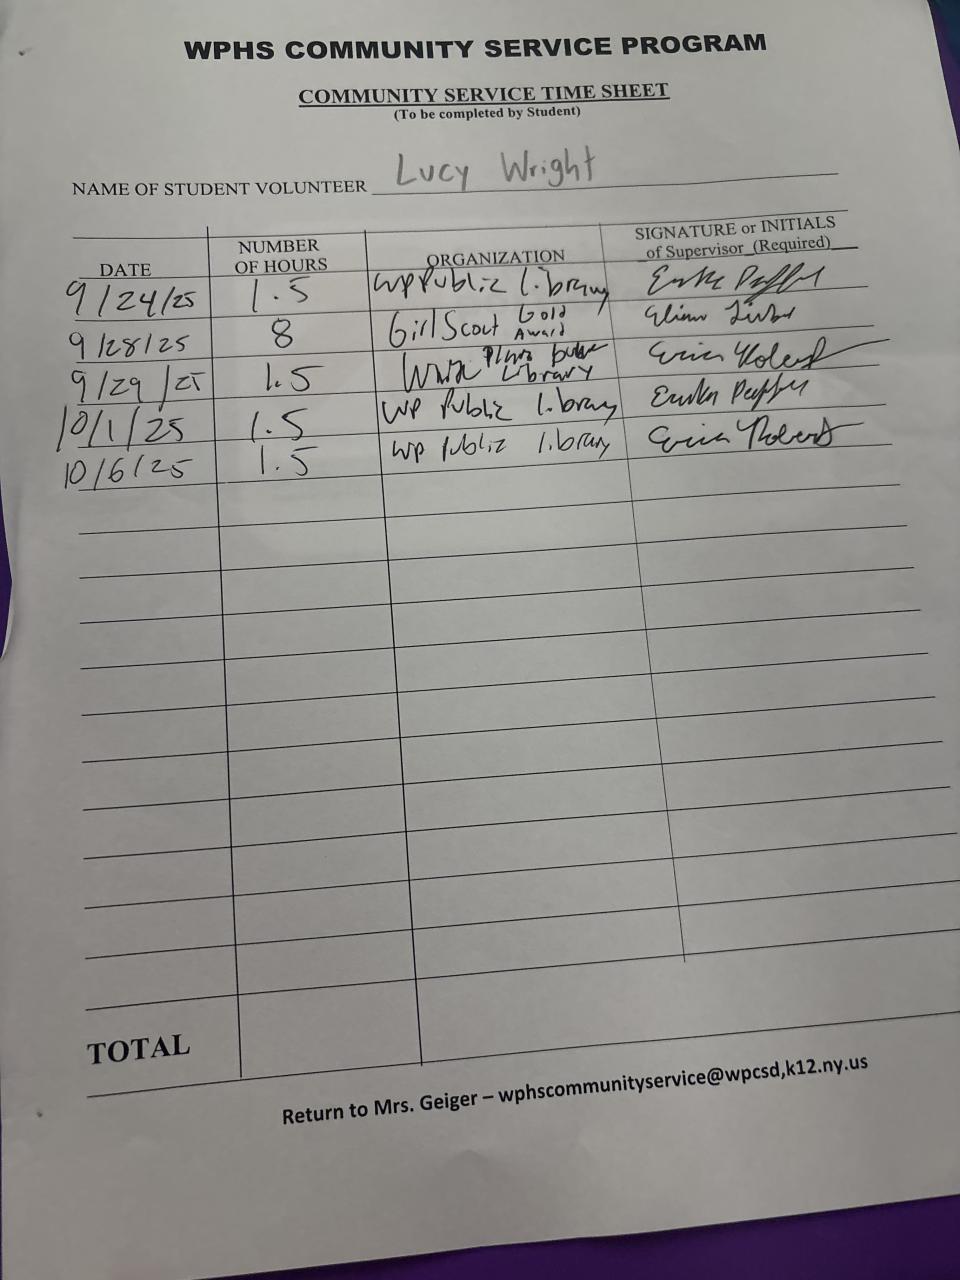 WPHS COMMUNITY SERVICE PROGRAM
COMMUNITY SERVICE TIME SHEET
(To be completed by Student)
NAME OF STUDENT VOLUNTEER Lucy Wright
DATE NUMBER OF HOURS ORGANIZATION SIGNATURE or INITIALS of Supervisor (Required)
9/24/25 1.5 WP Public Library
9/28/25 8 Girl Scout Gold Award
9/29/25 1.5 Plains Library
10/1/25 1.5 WP Public Library
10/6/25 1.5 WP Public Library
TOTAL
Return to Mrs. Geiger – wphscommunityservice@wpcsd,k12.ny.us